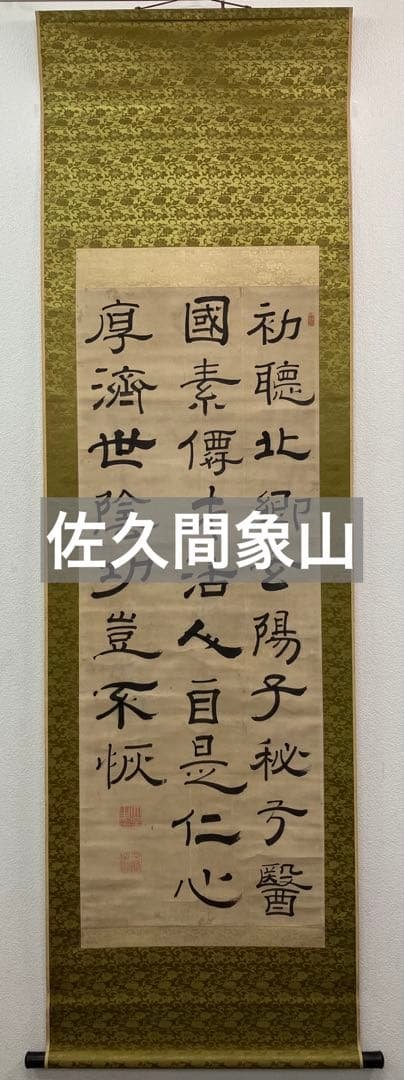 初聽北鄉陽子秘方醫
國素活人自是仁心
厚濟世陰功豈不恢
佐久間象山